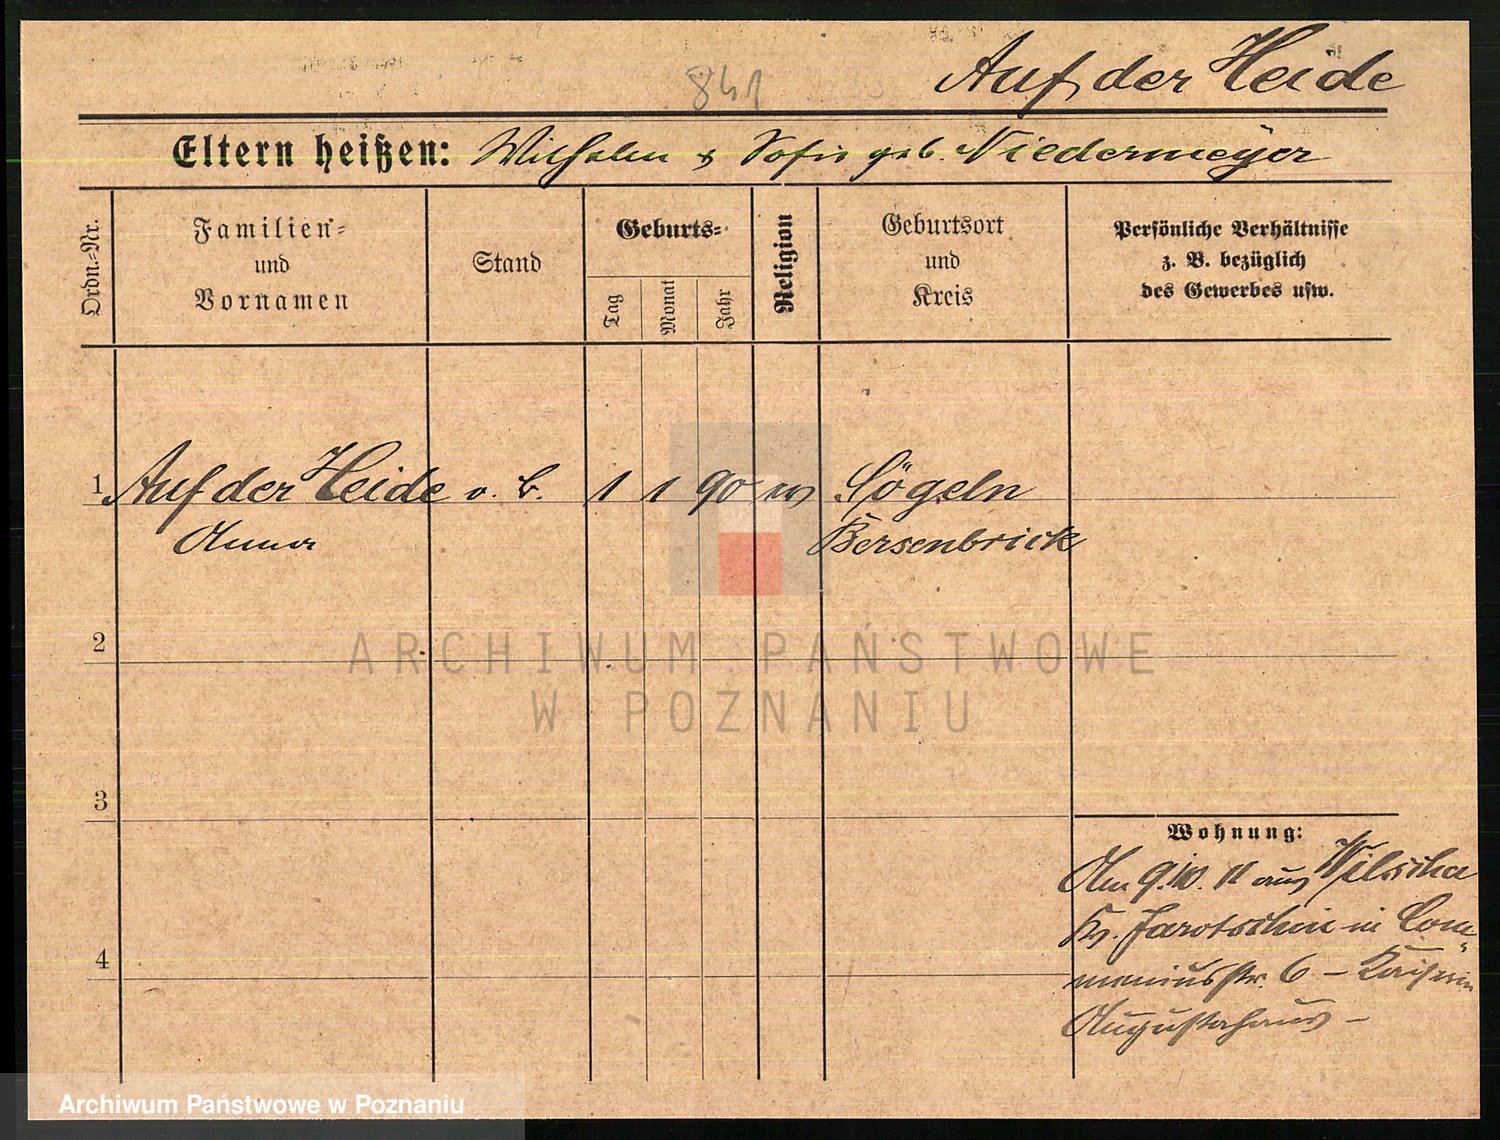 841
Auf der Heide
Eltern heißen: Wilhelm & Sofie geb. Niedermeyer
Ordn.-Nr.
Familien-
und
Vornamen
Stand
Geburts-
Tag
Monat
Jahr
Religion
Geburtsort
und
Kreis
Persönliche Verhältnisse
z. B. bezüglich
des Gewerbes usw.
1 Auf der Heide o. B. 1 1 90 Sögeln
Anna Bersenbrück
2
ARCHIWUM PAŃSTWOWE
W POZNANIU
3
Wohnung:
Am 9. 10. 11 aus Wilscha
Kr. Jarotschin in Com-
meniusstr. 6 – Kaiserin
4
Augustahaus –
Archiwum Państwowe w Poznaniu